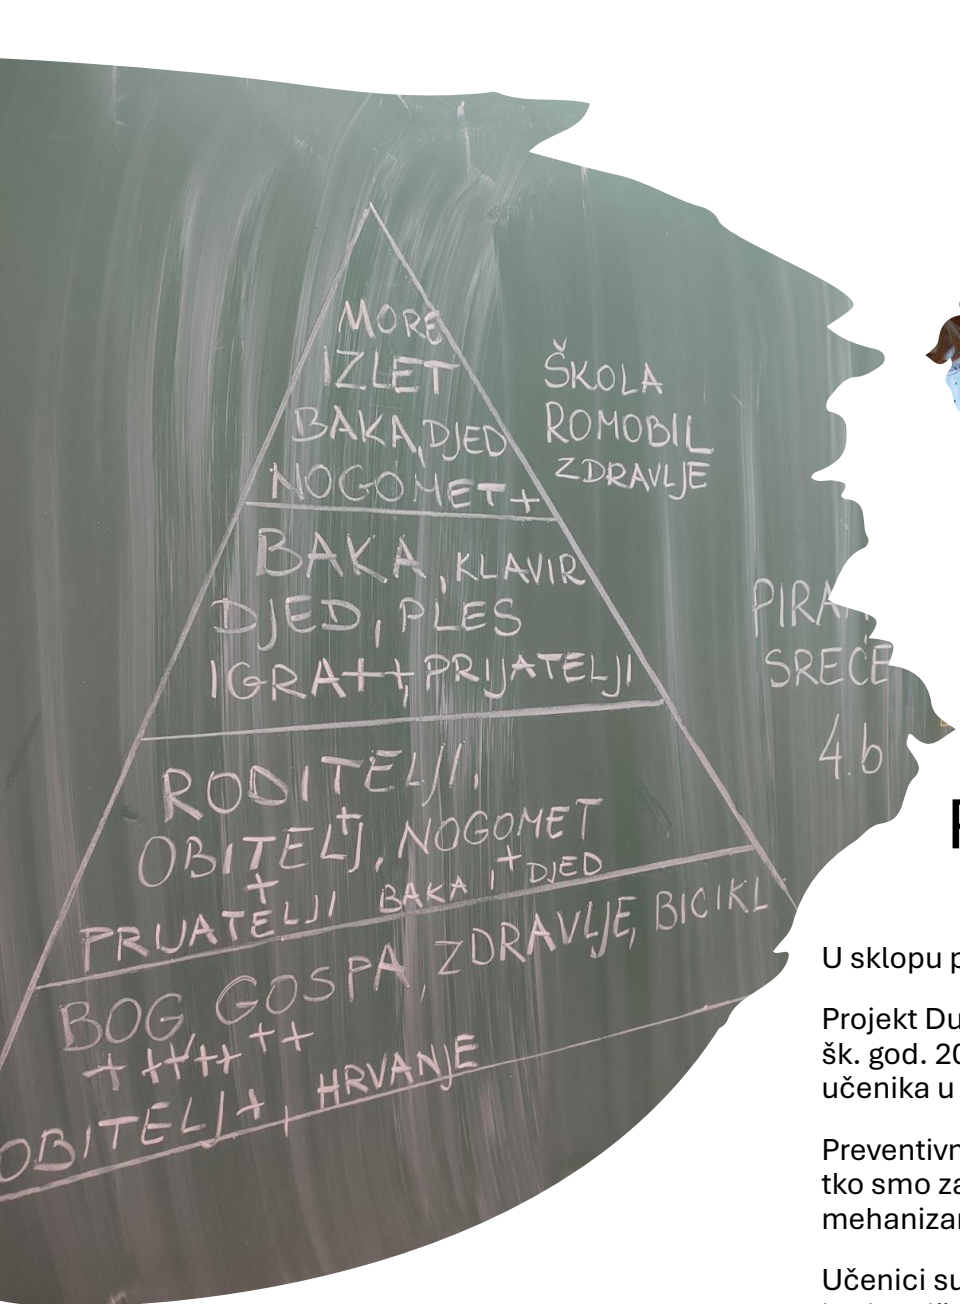 MORE
IZLET
BAKA, DJED
NOGOMET+
ŠKOLA
ROMOBIL
ZDRAVLJE
BAKA, KLAVIR
DJED, PLES
IGRA++, PRIJATELJI
RODITELJI,
OBITELJ, NOGOMET
+
+ +
PRIJATELJI BAKA, DJED
BOG, GOSPA, ZDRAVLJE, BICIKL
+ ++++ ++
OBITELJ+, HRVANJE
SREĆE
4.b
U sklopu
Projekt
šk. god.
učenika u
Preventivn
tko smo
Učenici su